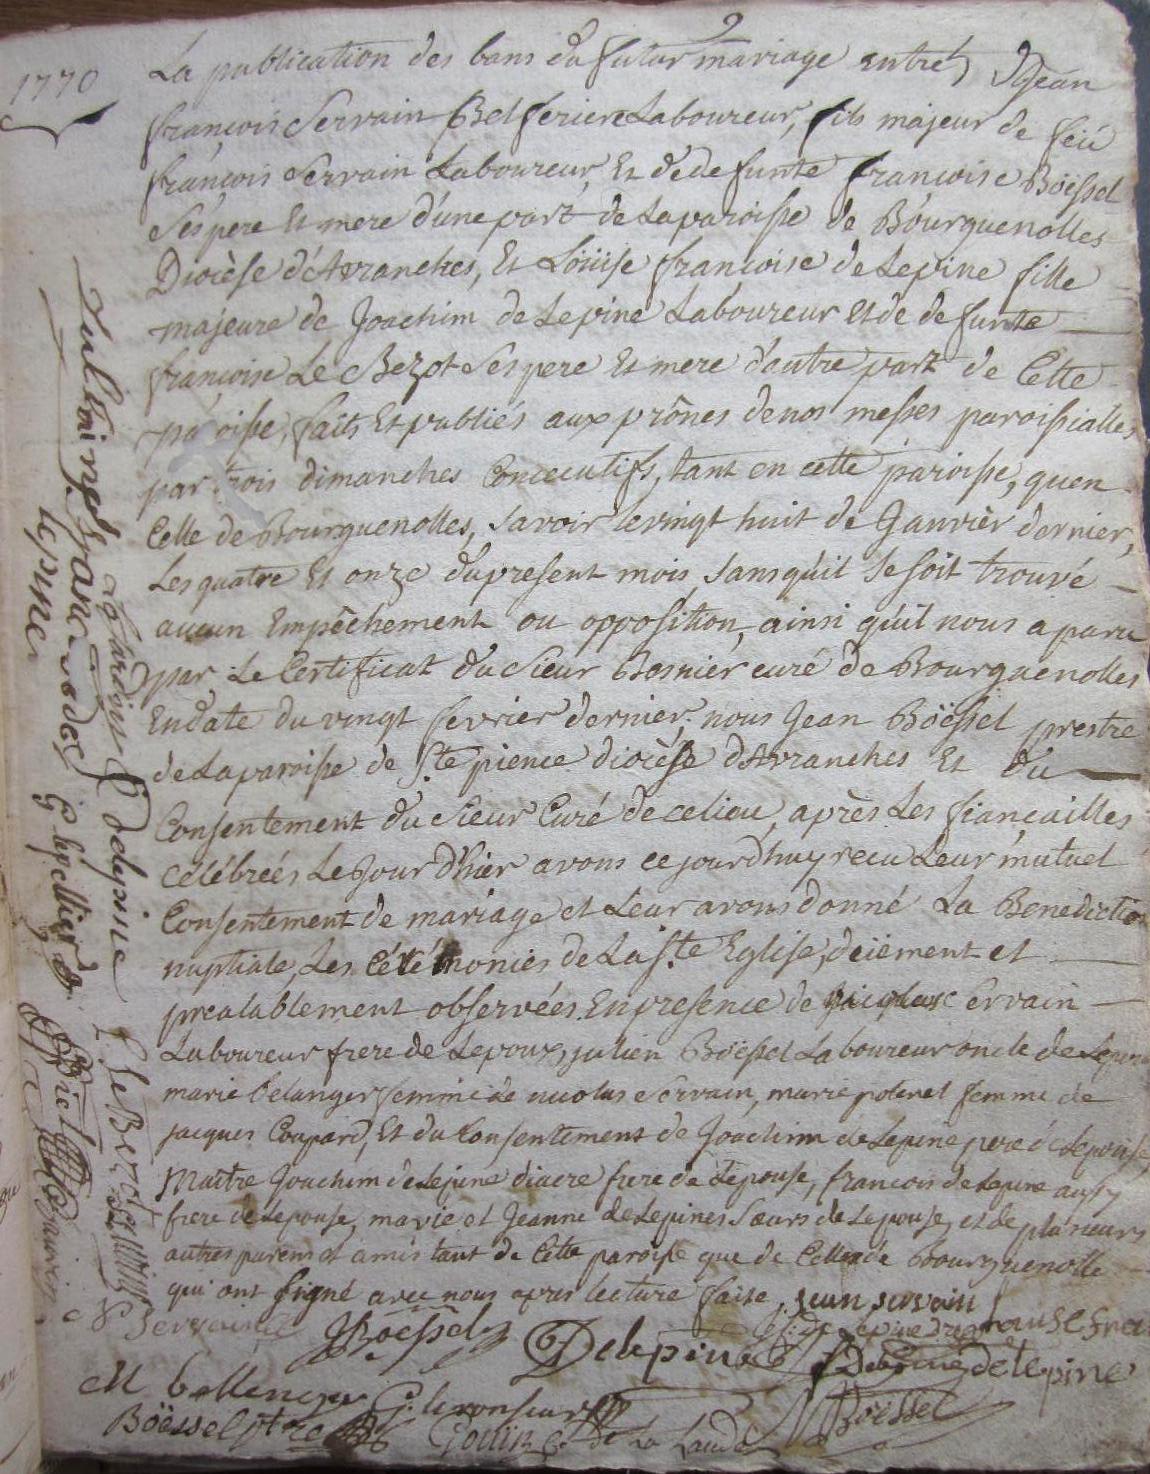 1770
La publication des bans du futur mariage entre Jean
françois Servain Belferiere Laboureur, fils majeur de feü
françois Servain Laboureur, Et de defunte françoise Böessel
Ses pere Et mere d'une part de La paroisse de Bourguenolles
Diocèse d'Avranches, Et Loüise françoise de Lepine fille
majeure de Joachim de Lepine Laboureur Et de defunte
françoise Le Bezot Ses pere Et mere d'autre part de Cette
paroisse, faits Et publiés aux prônes de nos messes paroissialles
par trois dimanches Concecutifs, tant en cette paroisse, quen
Celle de Bourguenolles, savoir le vingt huit de Janvier dernier,
Les quatre Et onze du present mois sans qu'il se soit trouvé
aucun Empêchement ou opposition, ainsi qu'il nous a paru
par Le Certificat du Sieur Bosnier curé de Bourguenolles
En date du vingt fevrier dernier. nous Jean Böessel prestre
de La paroisse de Ste pience diocèse d'Avranches Et du
Consentement du Sieur Curé de ce lieu, après Les fiançailles
célébrées Le Jour d'hier avons ce jourd'huy recu Leur mutuel
Consentement de mariage et Leur avons donné La Benediction
nuptiale, Les Cérémonies de La Ste Eglise, deüement et
prealablement observées. En presence de Servain
Laboureur frere de Lepoux, julien Böessel Laboureur oncle de Lepoux
marie belanger femme de nicolas Servain, marie poterel femme de
jacques Coupard, Et du Consentement de Joachim de Lepine pere de Lepouse,
Maitre Joachim de Lepine diacre frere de Lepouse, françois de Lepine aussy
frere de Lepouse, marie et Jeanne de Lepines Sœurs de Lepouse, et de plusieurs
autres parens et amis tant de Cette paroisse que de Celle de bourguenolle
qui ont signé avec nous apres lecture faite, jean servain
Louise fran
N Servain JBoessel Delepine de lepine
M bellenger G. Boessel
Böessel ptre Gouin de la Lande
lepine
J Le Bezot